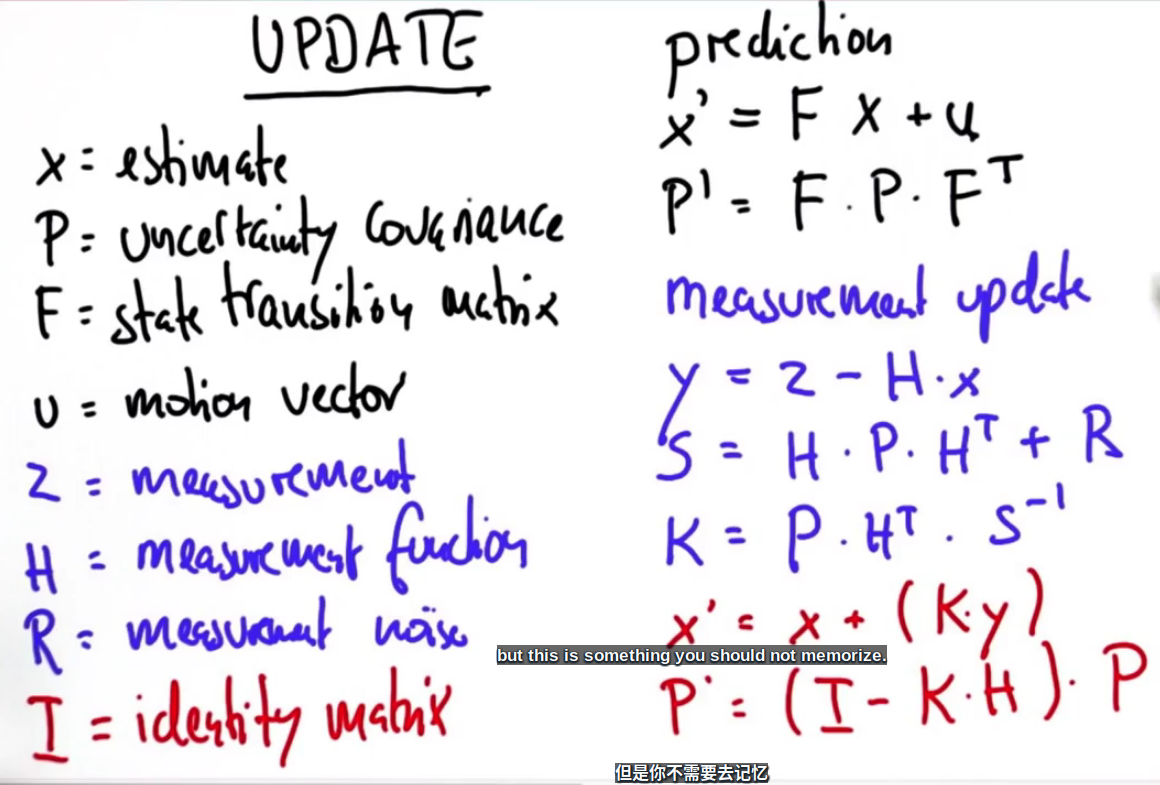 UPDATE
x = estimate
P = uncertainty covariance
F = state transition matrix
u = motion vector
z = measurement
H = measurement function
R = measurement noise
I = identity matrix
prediction
x' = F x + u
P' = F · P · Fᵀ
measurement update
y = z - H · x
S = H · P · Hᵀ + R
K = P · Hᵀ · S⁻¹
x' = x + (K · y)
P' = (I - K · H) · P
but this is something you should not memorize.
但是你不需要去记忆